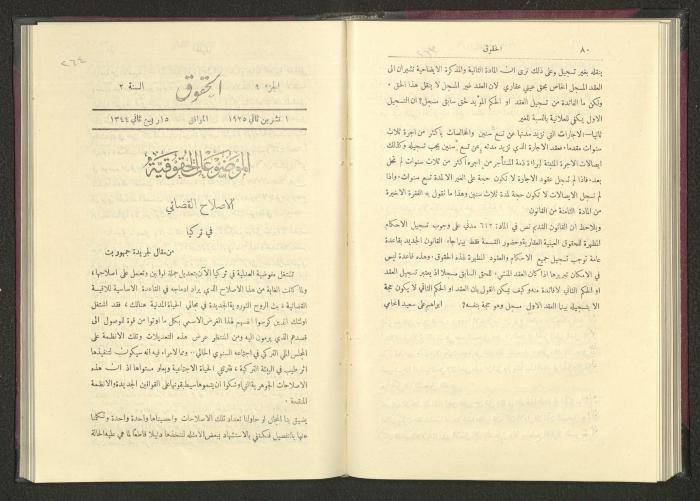 ٨٠
الحقوق
بنقله بغير تسجيل وعلى ذلك نرى ان المادة الثانية والمذكرة الايضاحية تشيران الى
العقد المسجل الخاص بحق عيني عقاري لان العقد غير المسجل لا ينقل هذا الحق.
ولكن ما الفائدة من تسجيل العقد او الحكم المؤيد لحق سابق مسجل؟ ان التسجيل
الاول يكفي للعلانية بالنسبة للغير
ثانيا—الاجارات التي تزيد مدتها عن تسع سنين والمخالصات باكثر من اجرة ثلاث
سنوات مقدما. فعقد الاجارة الذي تزيد مدته عن تسع سنين يجب تسجيله وكذلك
ايصالات الاجرة المثبتة لبراءة ذمة المستأجر من اجرة اكثر من ثلاث سنوات لم تحل
بعد. فاذا لم تسجل عقود الاجارة لا تكون حجة على الغير الا لمدة تسع سنوات. واذا
لم تسجل الايصالات لا تكون حجة لمدة ثلاث سنين وهذا ما نقول به الفقرة الاخيرة
من المادة الثامنة من القانون
ويلاحظ ان القانون القديم نص في المادة ٦١٢ مدني على وجوب تسجيل الاحكام
المظهرة للحقوق العينية العقارية وحضور القسمة فقط بينما جاء القانون الجديد بقاعدة
عامة توجب تسجيل جميع الاحكام والعقود المظهرة لهذه الحقوق. وهذه قاعدة ليس
في الامكان تبريرها اذا كان العقد المنشئ للحق السابق مسجلا اذ يعتبر تسجيل العقد
او الحكم الثاني لا فائدة منه وكيف يمكن القول بان العقد او الحكم الثاني لا يكون حجة
الا بتسجيله بينما العقد الاول مسجل وهو حجة بنفسه؟ ابراهيم علي سعيد المحامي
٢٦٤
الجزء ٩
الحقوق
السنة ٢
١ تشرين ثاني ١٩٢٥
الموافق
١٥ ربيع ثاني ١٣٤٤
الموضوعات الحقوقية
الاصلاح القضائي
في تركيا
من مقال لجريدة جمهوريت
تشتغل مفوضية العدلية في تركيا الآن بتعديل جملة قوانين وتعمل على اصلاحها،
ولما كانت الغاية من هذا الاصلاح الذي يراد ادماجه في القاعدة الاساسية للاقيسة
القضائية، بث الروح الثورية الجديدة في مجالي الحياة المدنية هنالك، فقد اشتغل
اولئك الذين كرسوا انفسهم لهذا الغرض الاسمى بكل ما اوتوا من قوة للوصول الى
قصدهم الذي يرمون اليه ومن المنتظر عرض هذه التعديلات وتلك الانظمة على
المجلس الملي التركي في اجتماعه السنوي الحالي.. ومما لا مراء فيه انه سيكون لتنفيذها
اثر طيب في البيئة التركية، فترتقي الحياة الاجتماعية ويعلو مستواها اذ ان هذه
الاصلاحات الجوهرية التي اوشكوا ان يتموها سيطبقونها على القوانين الجديدة والانظمة
المتقدمة.
يضيق بنا المجال لو حاولنا تعداد تلك الاصلاحات واحصيناها واحدة واحدة وتكلمنا
عنها بالتفصيل فنكتفي بالاستشهاد ببعض الامثلة لنتخذها دليلا قاطعا لما هي عليه الحالة